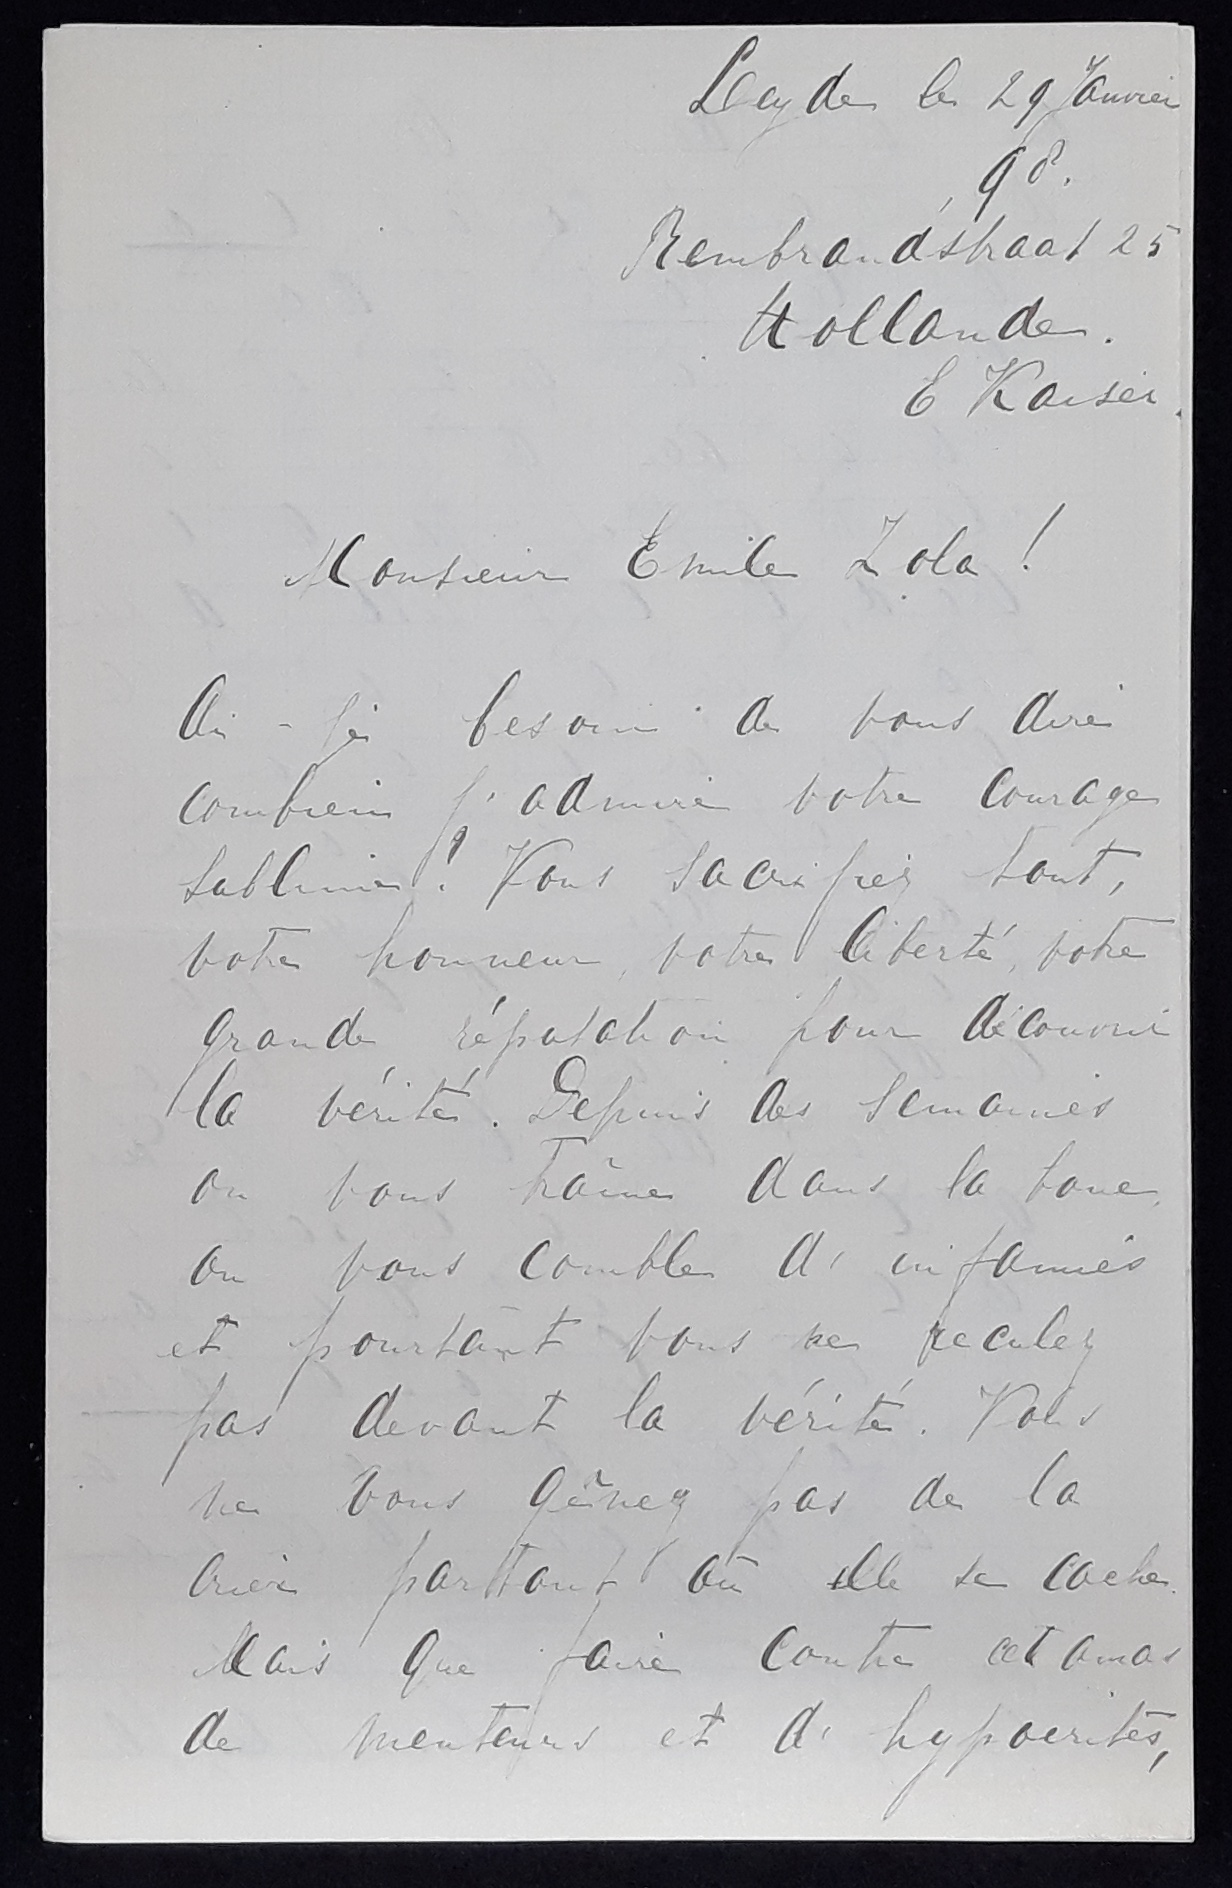 Leyde le 29 Janvier
98.
Rembrandstraat 25
Hollande.
E Kaiser.
Monsieur Emile Zola !
Ai-je besoin de vous dire
combien j'admire votre courage
sublime ! Vous sacrifiez tout,
votre honneur, votre liberté, votre
grande réputation pour découvrir
la vérité. Depuis des semaines
on vous traîne dans la boue,
on vous comble d'infamies
et pourtant vous ne reculez
pas devant la vérité. Vous
ne vous gênez pas de la
crier partout où elle se cache.
Mais que faire contre cet amas
de menteurs et d'hypocrites,